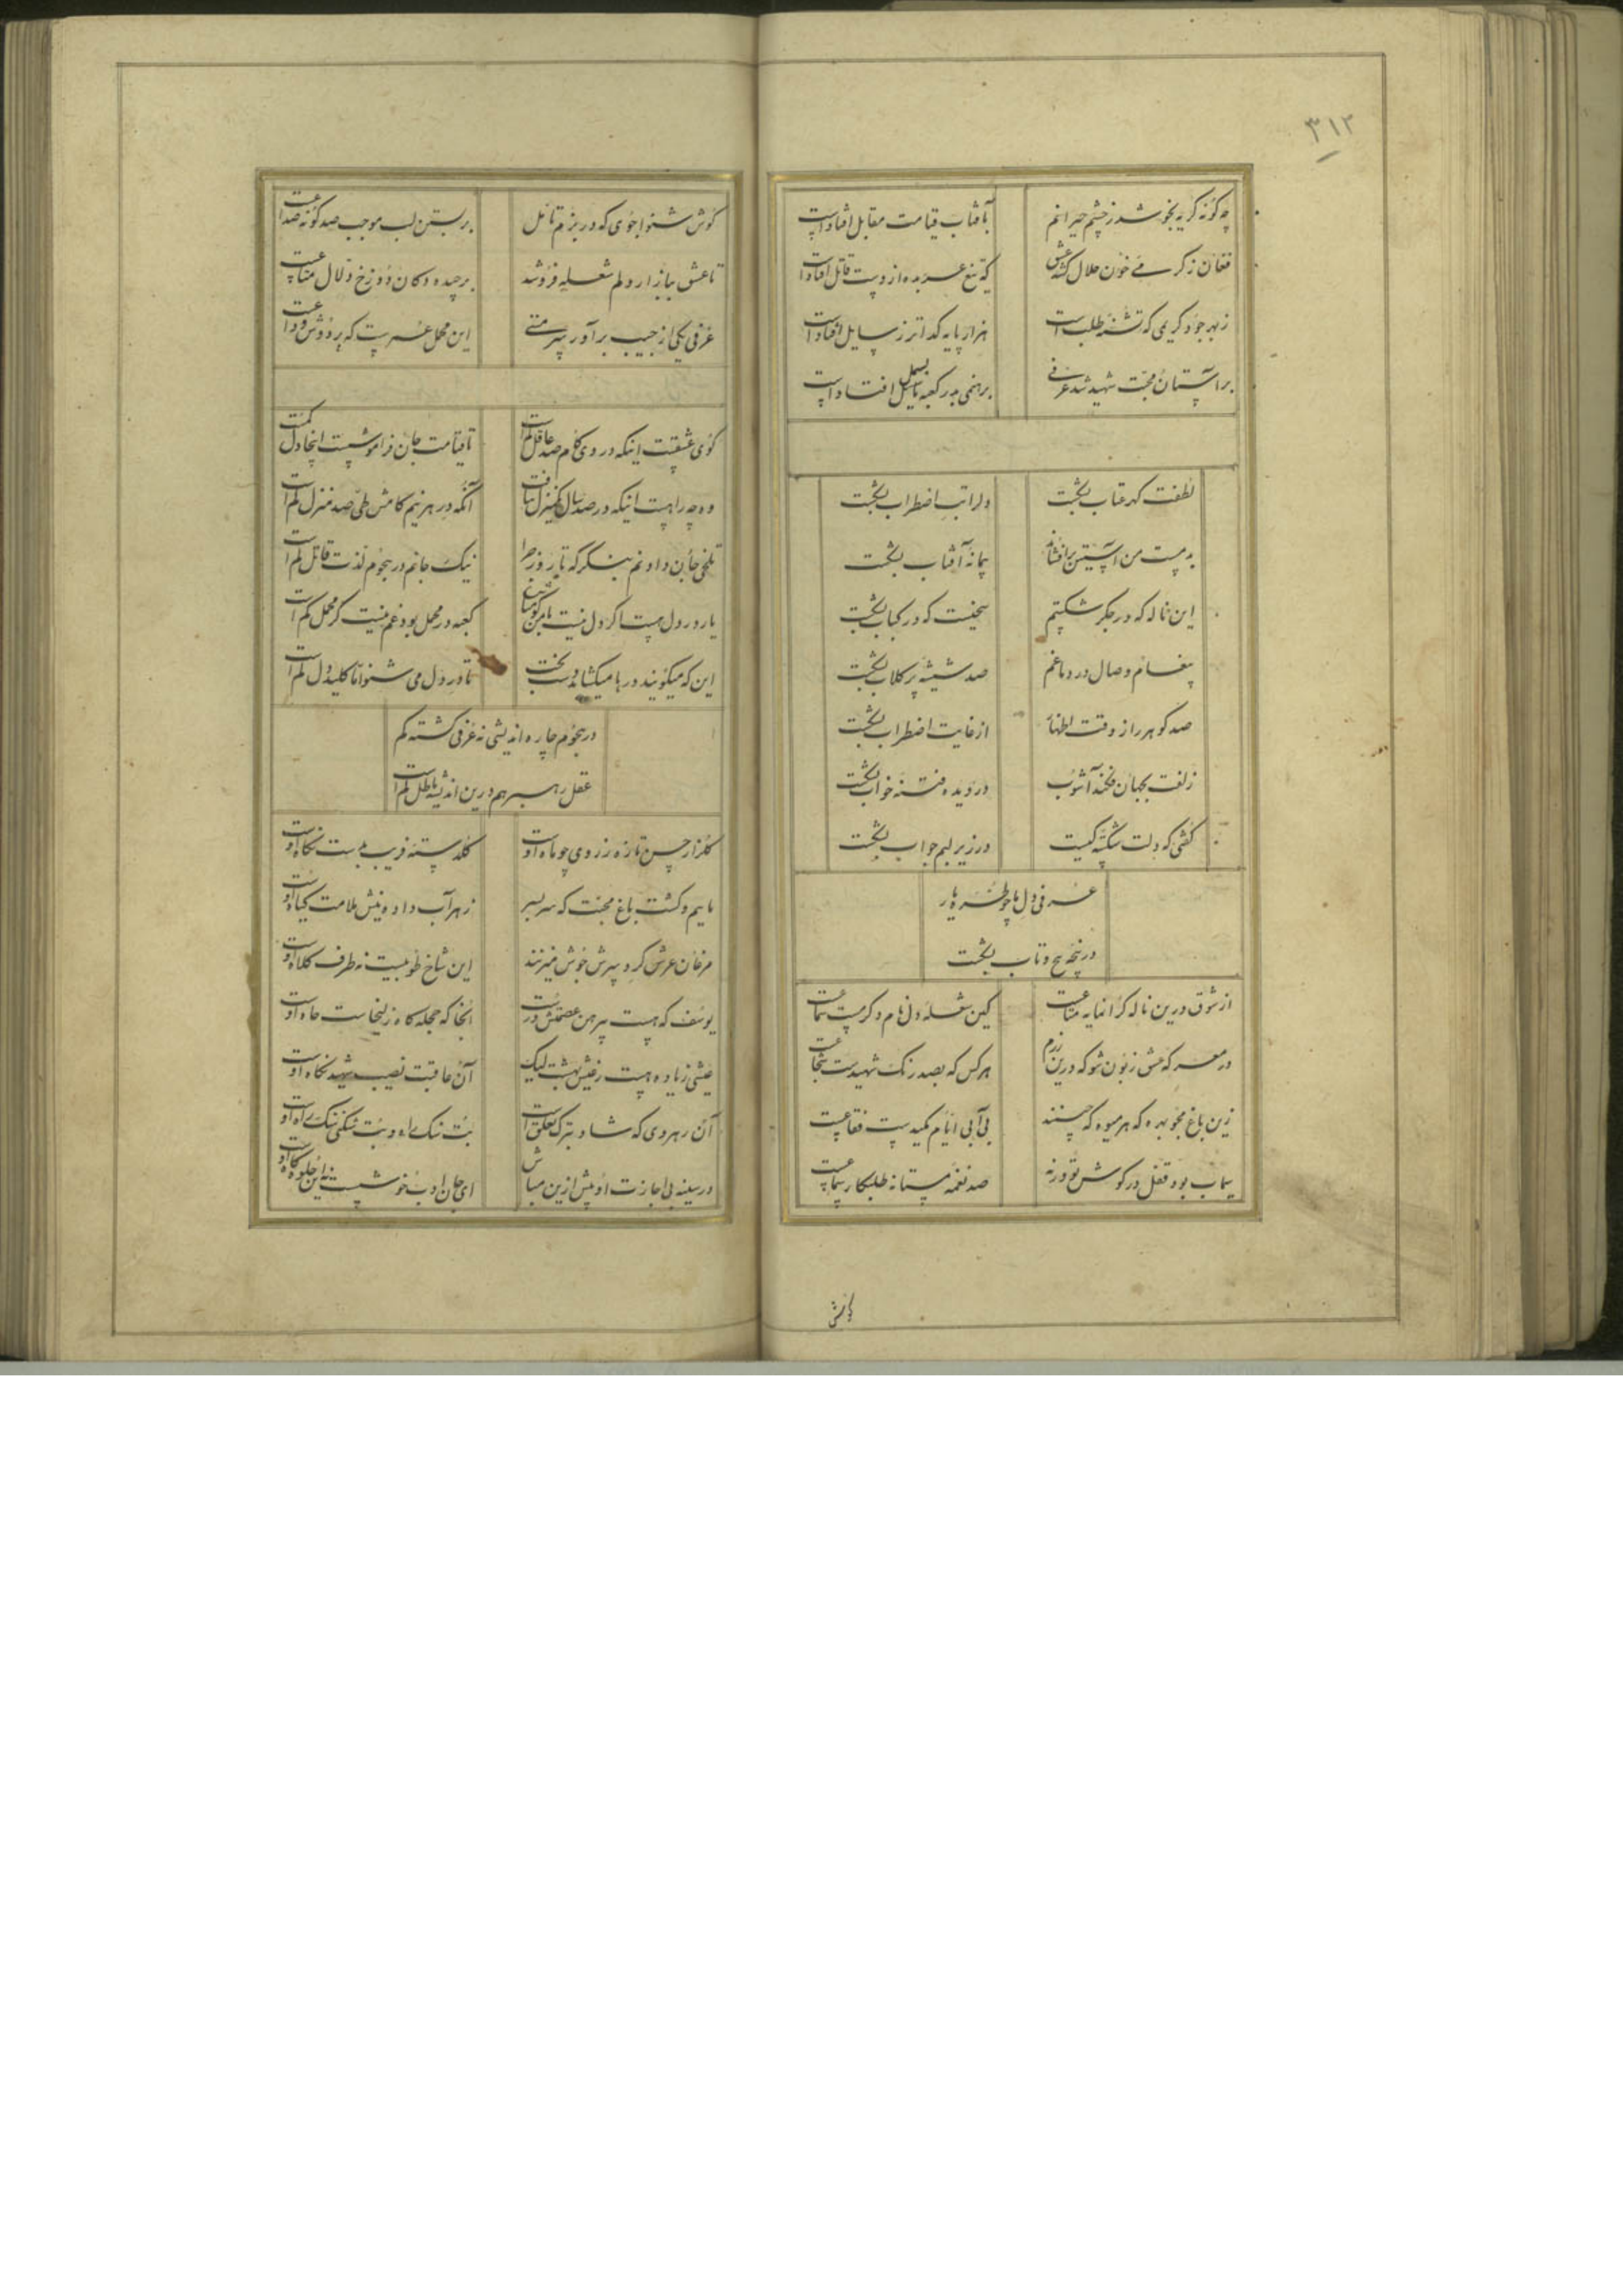 ۳۱۲
چه گونه گریه بجوشد ز چشم حیرانم بآفتاب قیامت مقابل افتادست
فغان ز گرمی خون حلال گشته عشق که تیغ عربده از دست قاتل افتادست
ز بهر جود کریمی که تشنه طلب است هزار پایه گداتر ز سایل افتادست
بر آستان محبت شهید شد عرفی برهمنی بدر کعبه بسمل افتادست
لطفت گهر عتاب بگسخت دل را تب اضطراب بگسخت
بدمست من آستین برافشاند پیمانه آفتاب بگسخت
این ناله که در جگر شکستیم سیخیست که در کباب بگسخت
پیغام وصال در دماغم صد شیشه پر گلاب بگسخت
صد گوهر راز وقت اظهار از غایت اضطراب بگسخت
زلفت بجهان فکند آشوب در دیده فتنه خواب بگسخت
گفتی که دلت شکسته کیست در زیر لبم جواب بگسخت
عرفی دل ما چو طره یار
در پنجه پیچ و تاب بگسخت
از شوق درین ناله گرانمایه متاعست کین شعله دل نام و کرمست
در معرکه عشق زبون شو که درین رزم هر کس که بصد رنگ شهیدست شجاعست
زین باغ مجو بهره که هر میوه که چینند بی آبی ایام مکیدست فقاعست
سیماب بود قفل در گوش تو ورنه صد نغمه مستانه طلبکار سماعست
گوش
گوش شنوا جوی که در بزم تأمل بربستن لب موجب صد گونه صداعست
تا عشق ببازار دلم شعله فروشد برچیده دکان دوزخ و دلال متاعست
عرفی یکی از جیب برآور سر متی این محمل عمرست که بر دوش وداعست
کوی عشقست اینکه در وی کام صد عاقل گم است تا قیامت جان فراموشست اینجا دل گمست
وه چه راهست اینکه در صد سال منزل نیافت آنکه در هر نیم گامش طی صد منزل گم است
تلخی جان دادنم بنگر که تا روز جزا نیک جانم در هجوم لذت قاتل گم است
یار در دل هست اگر دل نیست با من گو مباش کعبه در محمل بود غم نیست گر محمل گم است
این که میگویند درها میگشاید دست بخت تا در دل می شنو اما کلید دل گم است
در هجوم چاره اندیشی نه عرفی گشته گم
عقل رهبر هم درین اندیشه باطل گم است
گلزار حسن تازه ز روی چو ماه اوست گلدسته فریب بدست نگاه اوست
ماییم و گشت باغ محبت که سر بسر زهرآب داده نیش ملامت گیاه اوست
مرغان عرش گرد سرش جوش میزنند این شاخ طوبیست نه طرف کلاه اوست
یوسف که هست پیرهن عصمتش درست آنجا که حجله گاه زلیخاست چاه اوست
عیشی زیاده هست ز عیش بهشت لیک آن عاقبت نصیب شهید نگاه اوست
آن رهروی که شاد بترک تعلق است بت سنگ راه و بت شکنی سنگ راه اوست
در سینه بی اجازت او بیش ازین مباش ای جان ادب خوشست نه این جلوه گاه اوست